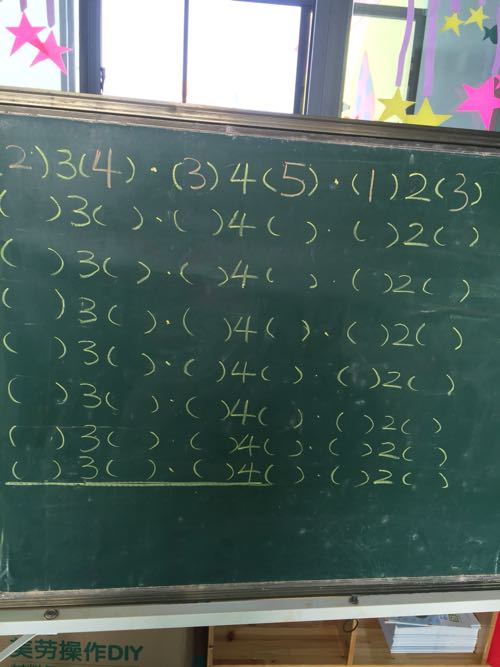 2)3(4)·(3)4(5)·(1)2(3)
( )3( )·( )4( )·( )2( )
( )3( )·( )4( )·( )2( )
( )3( )·( )4( )·( )2( )
( )3( )·( )4( )·( )2( )
( )3( )·( )4( )·( )2( )
( )3( )·( )4( )·( )2( )
( )3( )·( )4( )·( )2( )
美劳操作DIY